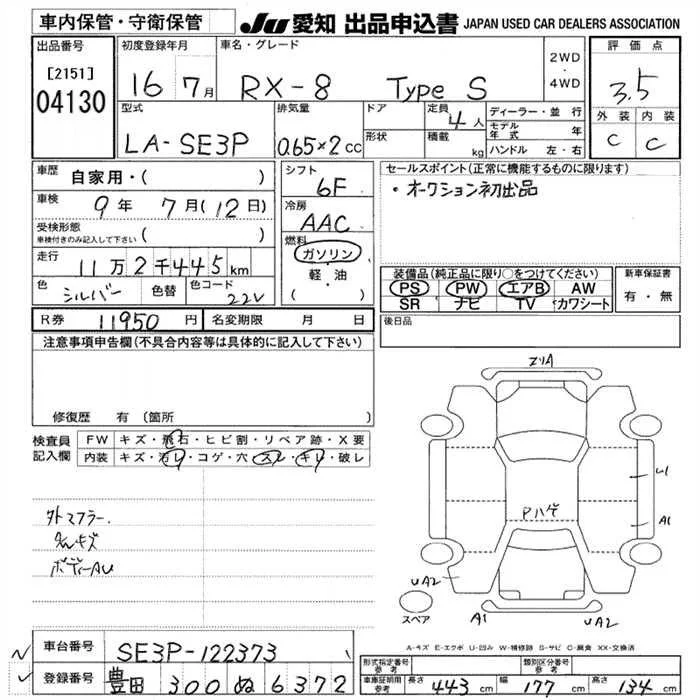 車内保管・守衛保管
JU 愛知 出品申込書 JAPAN USED CAR DEALERS ASSOCIATION
出品番号
[2151]
04130
初度登録年月
16 7月
車名・グレード
RX-8 Type S
2WD
・
4WD
評価点
3.5
外装 内装
C C
型式
LA-SE3P
排気量
0.65×2 CC
ドア
形状
定員 4 人
積載 kg
ディーラー・並行
モデル年式 年
ハンドル 左・右
車歴 自家用・( )
車検 9年 7月(12日)
受検形態
車検付きのみ記入して下さい ( )
走行 11万2千445km
色 シルバー 色替 色コード 22V
シフト
6F
冷房
AAC
燃料
ガソリン
軽・油
( )
セールスポイント(正常に機能するものに限ります)
・オークション初出品
装備品(純正品に限り○をつけてください)
PS PW エアB AW
SR ナビ TV カワシート
新車保証書
有・無
R券 11950円 名変期限 月 日
後日品
注意事項申告欄(不具合内容等は具体的に記入して下さい)
修復歴 有 〔箇所 〕
検査員
記入欄
FW キズ・飛石・ヒビ割・リペア跡・X要
内装 キズ・汚レ・コゲ・穴・スレ・キレ・破レ
外マフラー.
ボディーAU
エリA
U1
A1
Pハゲ
UA2
A1
UA2
スペア
A-キズ E-エクボ U-凹み W-補修跡 S-サビ C-腐食 XX-交換済
車台番号 SE3P-122373
登録番号 豊田 300 ぬ 6372
形式指定番号
参考
類別区分番号
参考
車庫証明用
参考
長さ 443 cm 幅 177 cm 高さ 134 cm